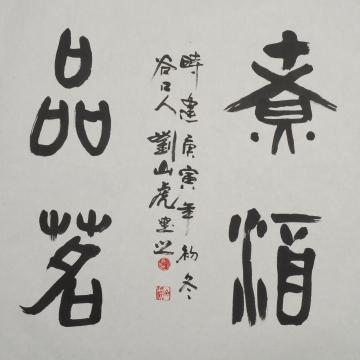 煮酒
品茗
時建庚寅年初冬
谷口人劉山虎之